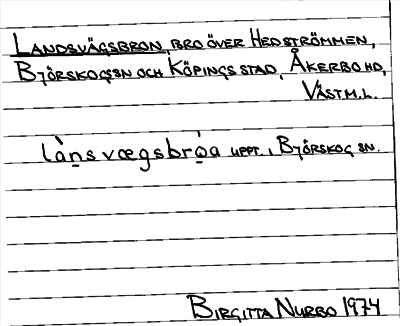 LANDSVÄGSBRON, BRO ÖVER HEDSTRÖMMEN,
BJÖRSKOGS SN OCH KÖPINGS STAD, ÅKERBO HD,
VÄSTM.L.
là̱nsvægsbro̱a UPPT. I BJÖRSKOG SN.
BIRGITTA NURBO 1974